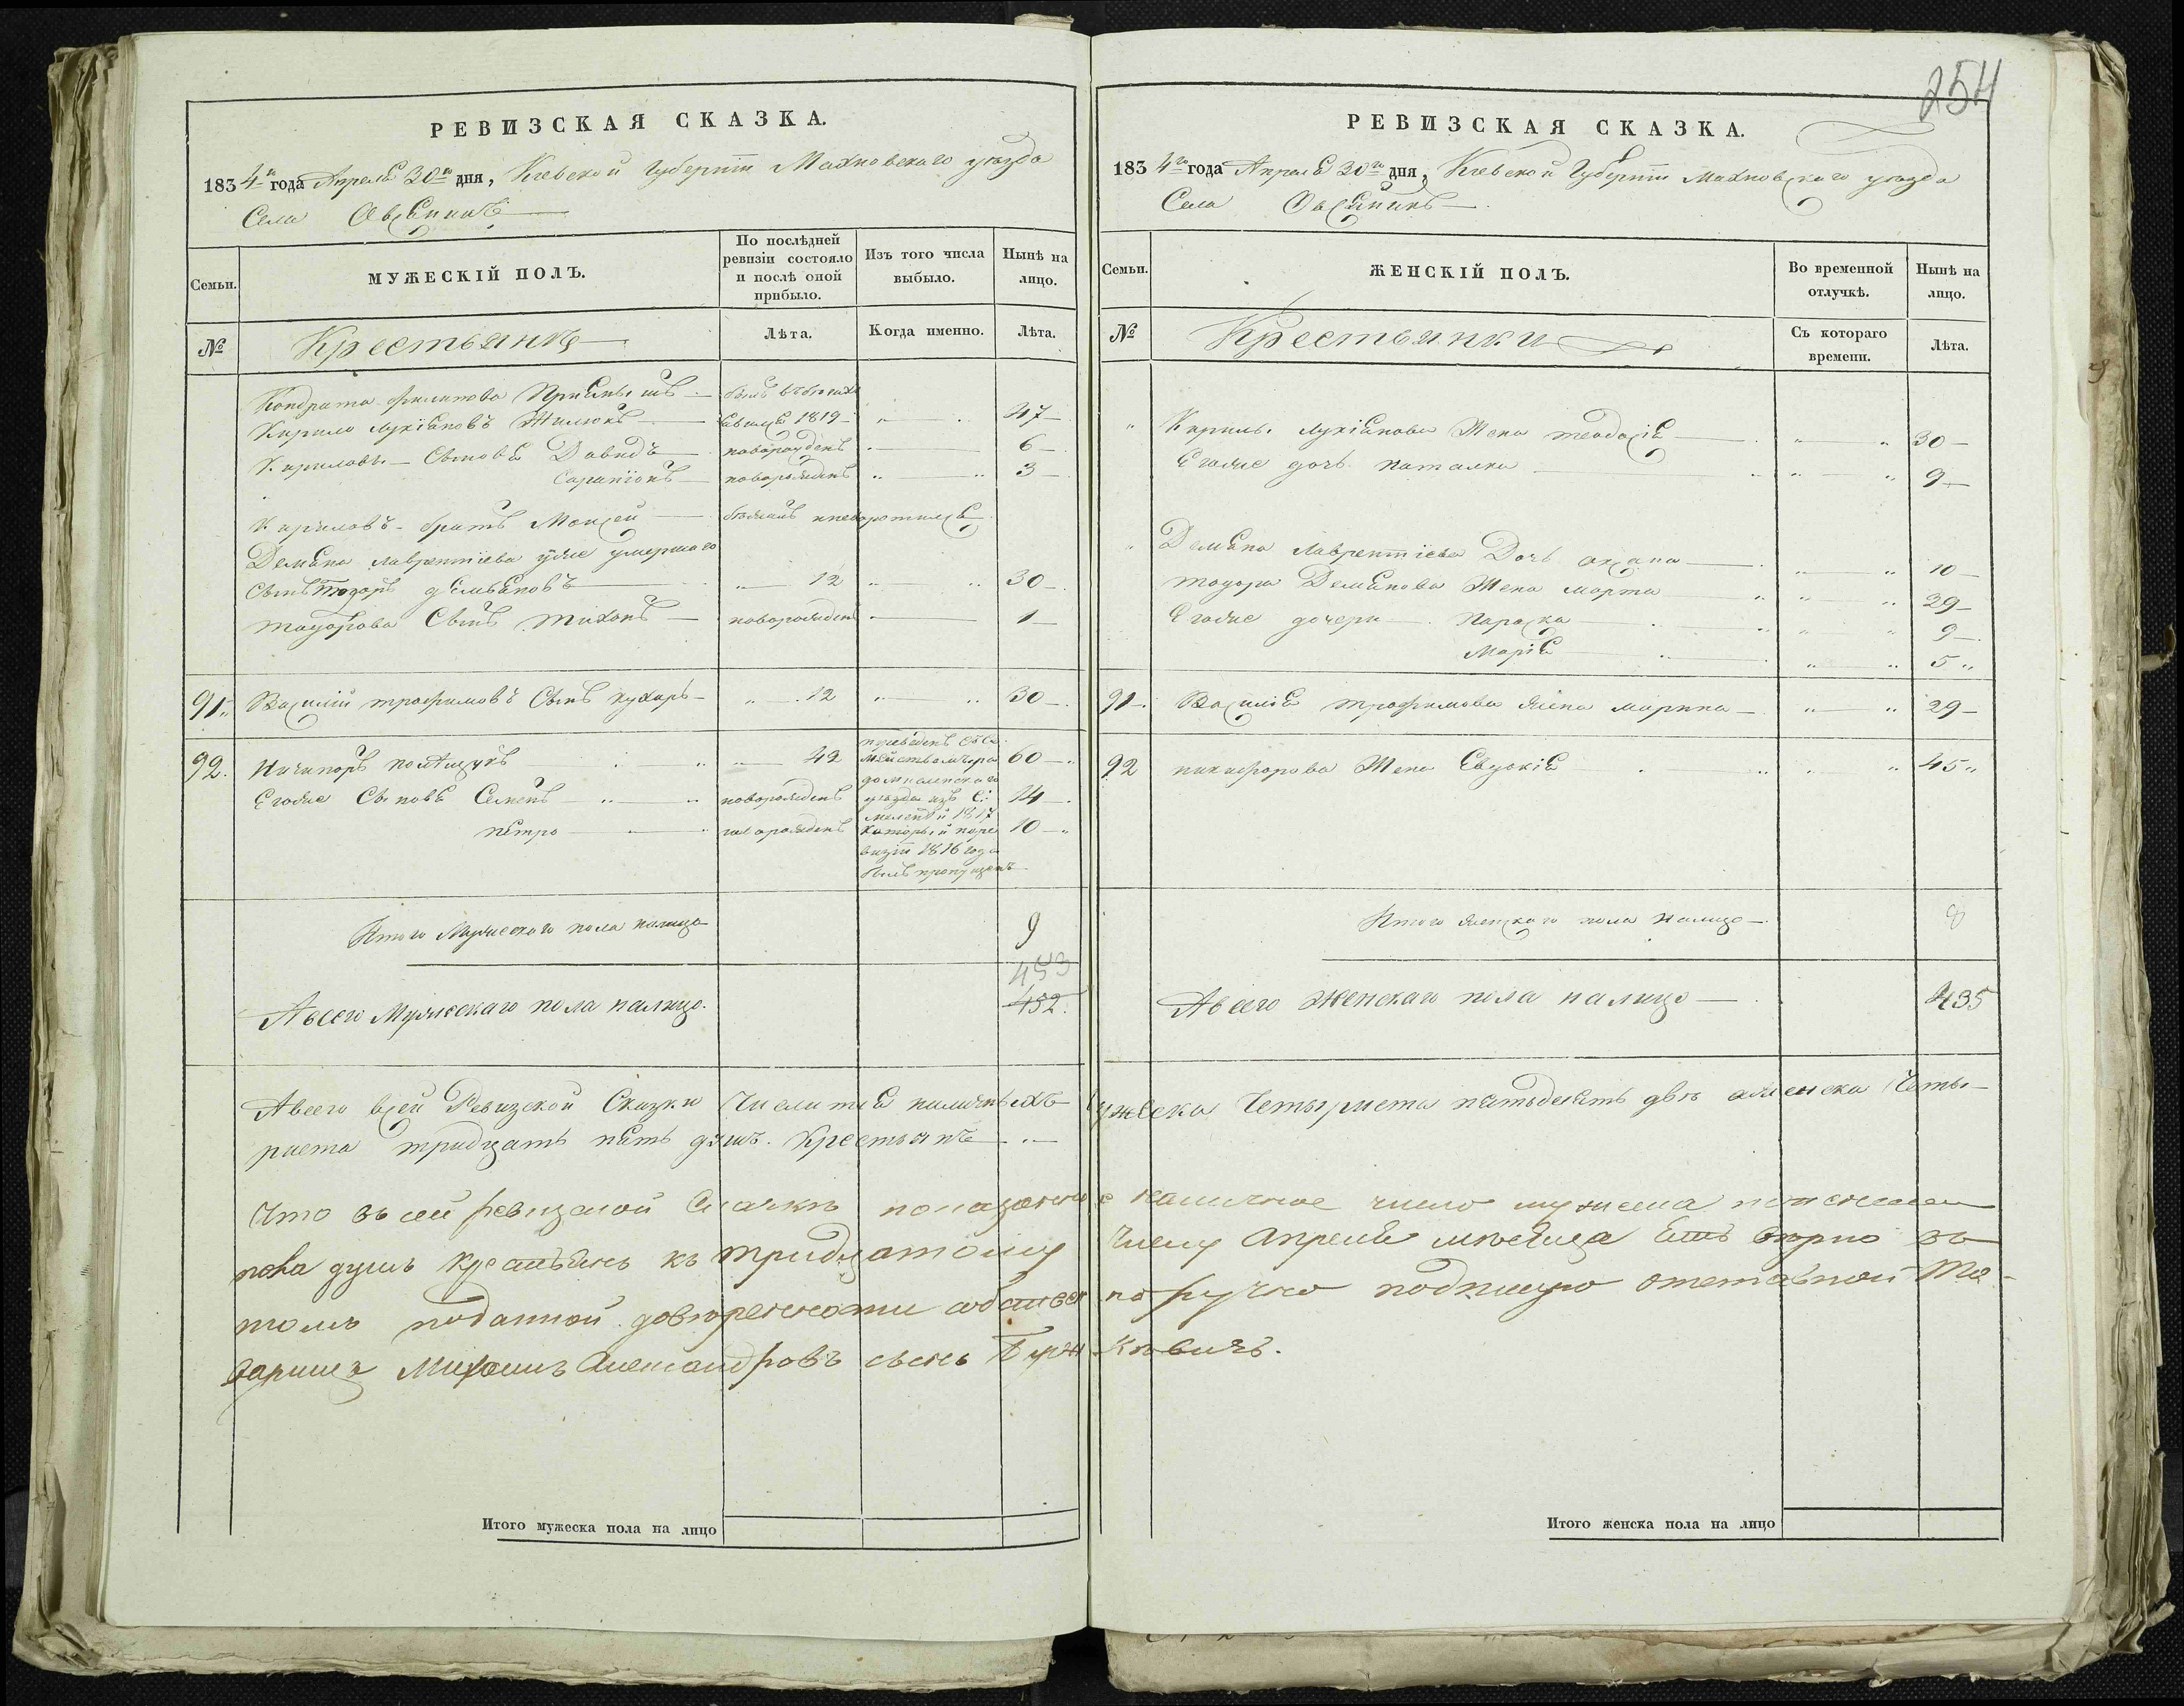 254
РЕВИЗСКАЯ СКАЗКА.
1834го года Апреля 30го дня, Киевской Губернiи Махновскаго уезда
Села Овсяникъ
Семьи. МУЖЕСКIЙ ПОЛЪ. По послѣдней ревизiи состояло и послѣ оной прибыло. Изъ того числа выбыло. Нынѣ на лицо.
№ Крестьянъ Лѣта. Когда именно. Лѣта.
Кондрата Филипова
Кирило Лукiяновъ Жилюкъ 1819 47
Кириловы Сыновя Давидъ новорожденъ 6
Сарапiонъ новорожденъ 3
Кириловъ братъ Моисей
Демяна Лаврентiева уже умершаго
Сынъ Тодоръ Демьяновъ 12 30
Тодорова Сынъ Тихонъ новорожденъ 1
91 Василiй Трофимовъ Сынъ Кухаръ 12 30
92. Ничипоръ Полищукъ 42 60
Егоже Сыновя Семенъ новорожденъ 14
Петро новорожденъ 10
ревизiи 1816 года
былъ пропущенъ
Итого Мужескаго пола налицо 9
453
Авсего Мужескаго пола налицо. 452.
РЕВИЗСКАЯ СКАЗКА.
1834го года Апреля 30го дня, Киевской Губернiи Махновскаго уезда
Села Овсяникъ
Семьи. ЖЕНСКIЙ ПОЛЪ. Во временной отлучкѣ. Нынѣ на лицо.
№ Крестьянки Съ котораго времени. Лѣта.
Кирилы Лукiянова Жена Теодосiя 30
Егоже дочь Наталка 9
Демяна Лаврентiева Дочь 10
Тодора Демянова Жена Марта 29
Егоже дочери Параска 9
Марiя 5
91 Василiя Трофимова жена Марина 29
92 Никифорова Жена Евдокiя 45
Итого женскаго пола налицо 8
Авсего Женскаго пола налицо 435
Авсего всей Ревизской Сказки Числится наличныхъ мужеска Четыриста пятьдесятъ двѣ аженска Четы-
риста тридцать пять душъ. Крестьянъ
Что въ сей ревизской Сказкѣ показанное наличное число мужеска и женска
пола душъ крестьянъ къ тридцатому числу Апреля мѣсяца Есть вѣрно въ
томъ поданной довѣренности собственноручно подпишуо отставной
Михаилъ Александровъ сынъ
Итого мужеска пола на лицо
Итого женска пола на лицо